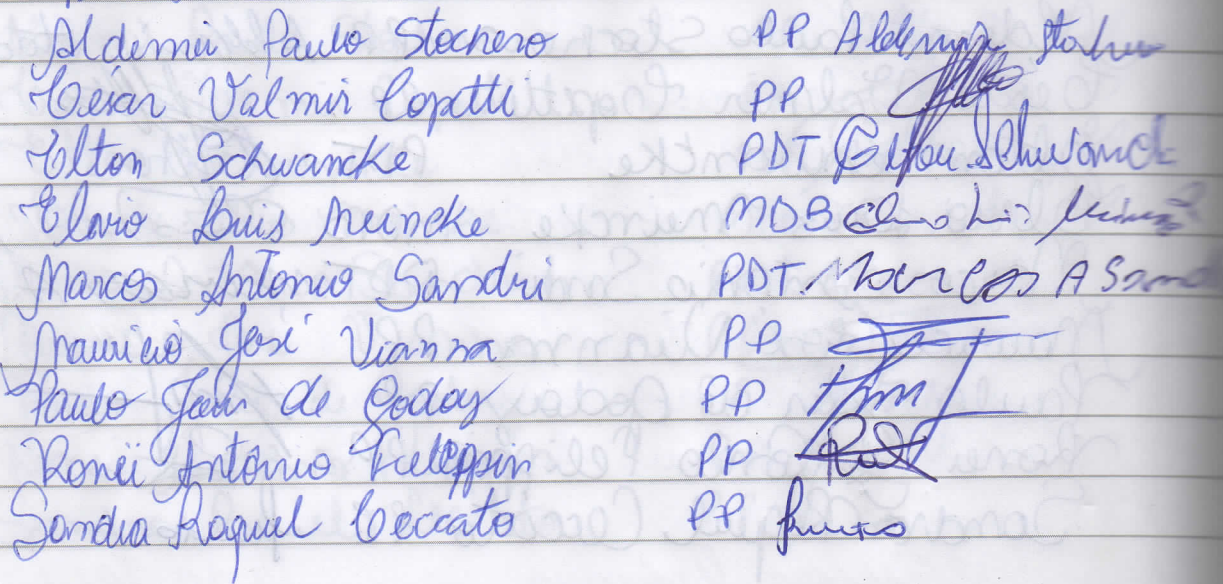 Aldemir Paulo Stochero PP Aldemir Stochero
César Valmir Copatti PP
Elton Schwancke PDT Elton Schwanck
Elavio Luis Meincke MDB
Marcos Antonio Sandri PDT. Marcos A Sand
Mauricio José Vianna PP
Paulo Jean de Godoy PP
Ronei Antônio Feleppin PP
Sandra Raquel Ceccato PP